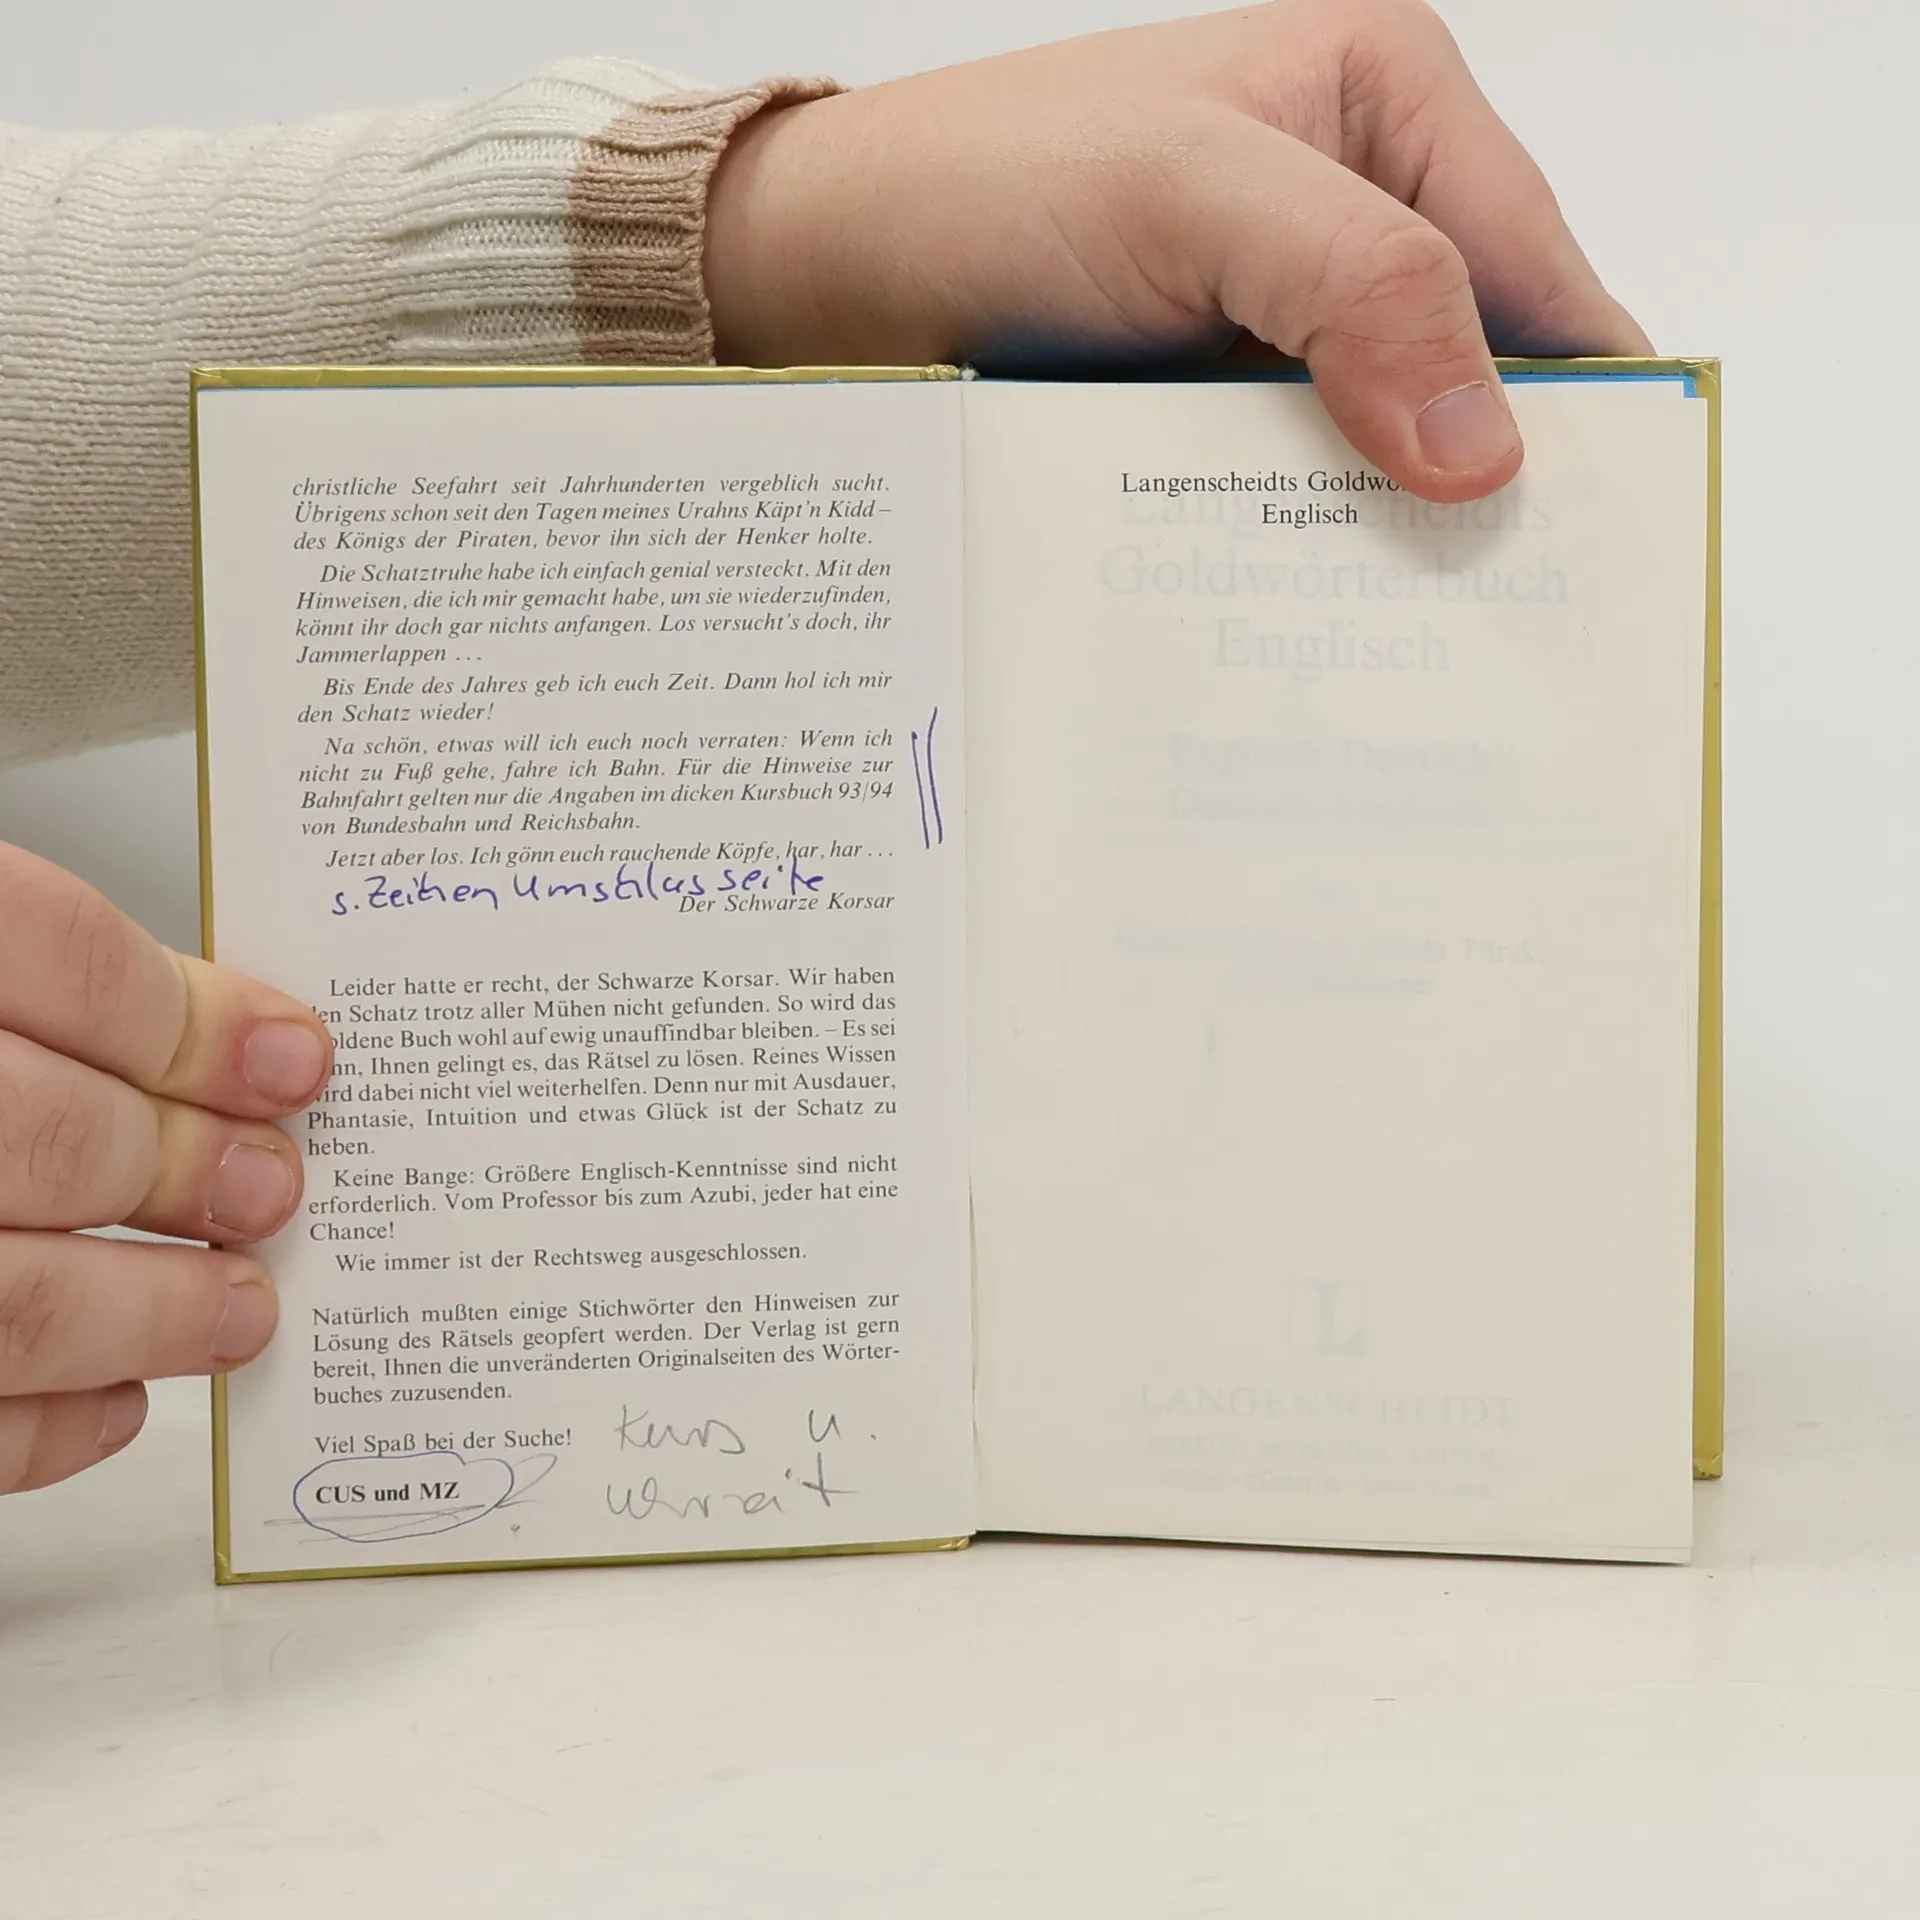 christliche Seefahrt seit Jahrhunderten vergeblich sucht.
Übrigens schon seit den Tagen meines Urahns Käpt'n Kidd –
des Königs der Piraten, bevor ihn sich der Henker holte.
Die Schatztruhe habe ich einfach genial versteckt. Mit den
Hinweisen, die ich mir gemacht habe, um sie wiederzufinden,
könnt ihr doch gar nichts anfangen. Los versucht's doch, ihr
Jammerlappen ...
Bis Ende des Jahres geb ich euch Zeit. Dann hol ich mir
den Schatz wieder!
Na schön, etwas will ich euch noch verraten: Wenn ich
nicht zu Fuß gehe, fahre ich Bahn. Für die Hinweise zur
Bahnfahrt gelten nur die Angaben im dicken Kursbuch 93/94
von Bundesbahn und Reichsbahn.
Jetzt aber los. Ich gönn euch rauchende Köpfe, har, har ...
s. Zeichen Umschlagseite
Der Schwarze Korsar
Leider hatte er recht, der Schwarze Korsar. Wir haben
Schatz trotz aller Mühen nicht gefunden. So wird das
Buch wohl auf ewig unauffindbar bleiben. – Es sei
Ihnen gelingt es, das Rätsel zu lösen. Reines Wissen
dabei nicht viel weiterhelfen. Denn nur mit Ausdauer,
Phantasie, Intuition und etwas Glück ist der Schatz zu
heben.
Keine Bange: Größere Englisch-Kenntnisse sind nicht
erforderlich. Vom Professor bis zum Azubi, jeder hat eine
Chance!
Wie immer ist der Rechtsweg ausgeschlossen.
Natürlich mußten einige Stichwörter den Hinweisen zur
Lösung des Rätsels geopfert werden. Der Verlag ist gern
bereit, Ihnen die unveränderten Originalseiten des Wörter-
buches zuzusenden.
Viel Spaß bei der Suche!
Kurs u.
CUS und MZ
Langenscheidts
Englisch
Langenscheidts
Goldwörterbuch
Englisch
Englisch-Deutsch
Türck
L
LANGENSCHEIDT